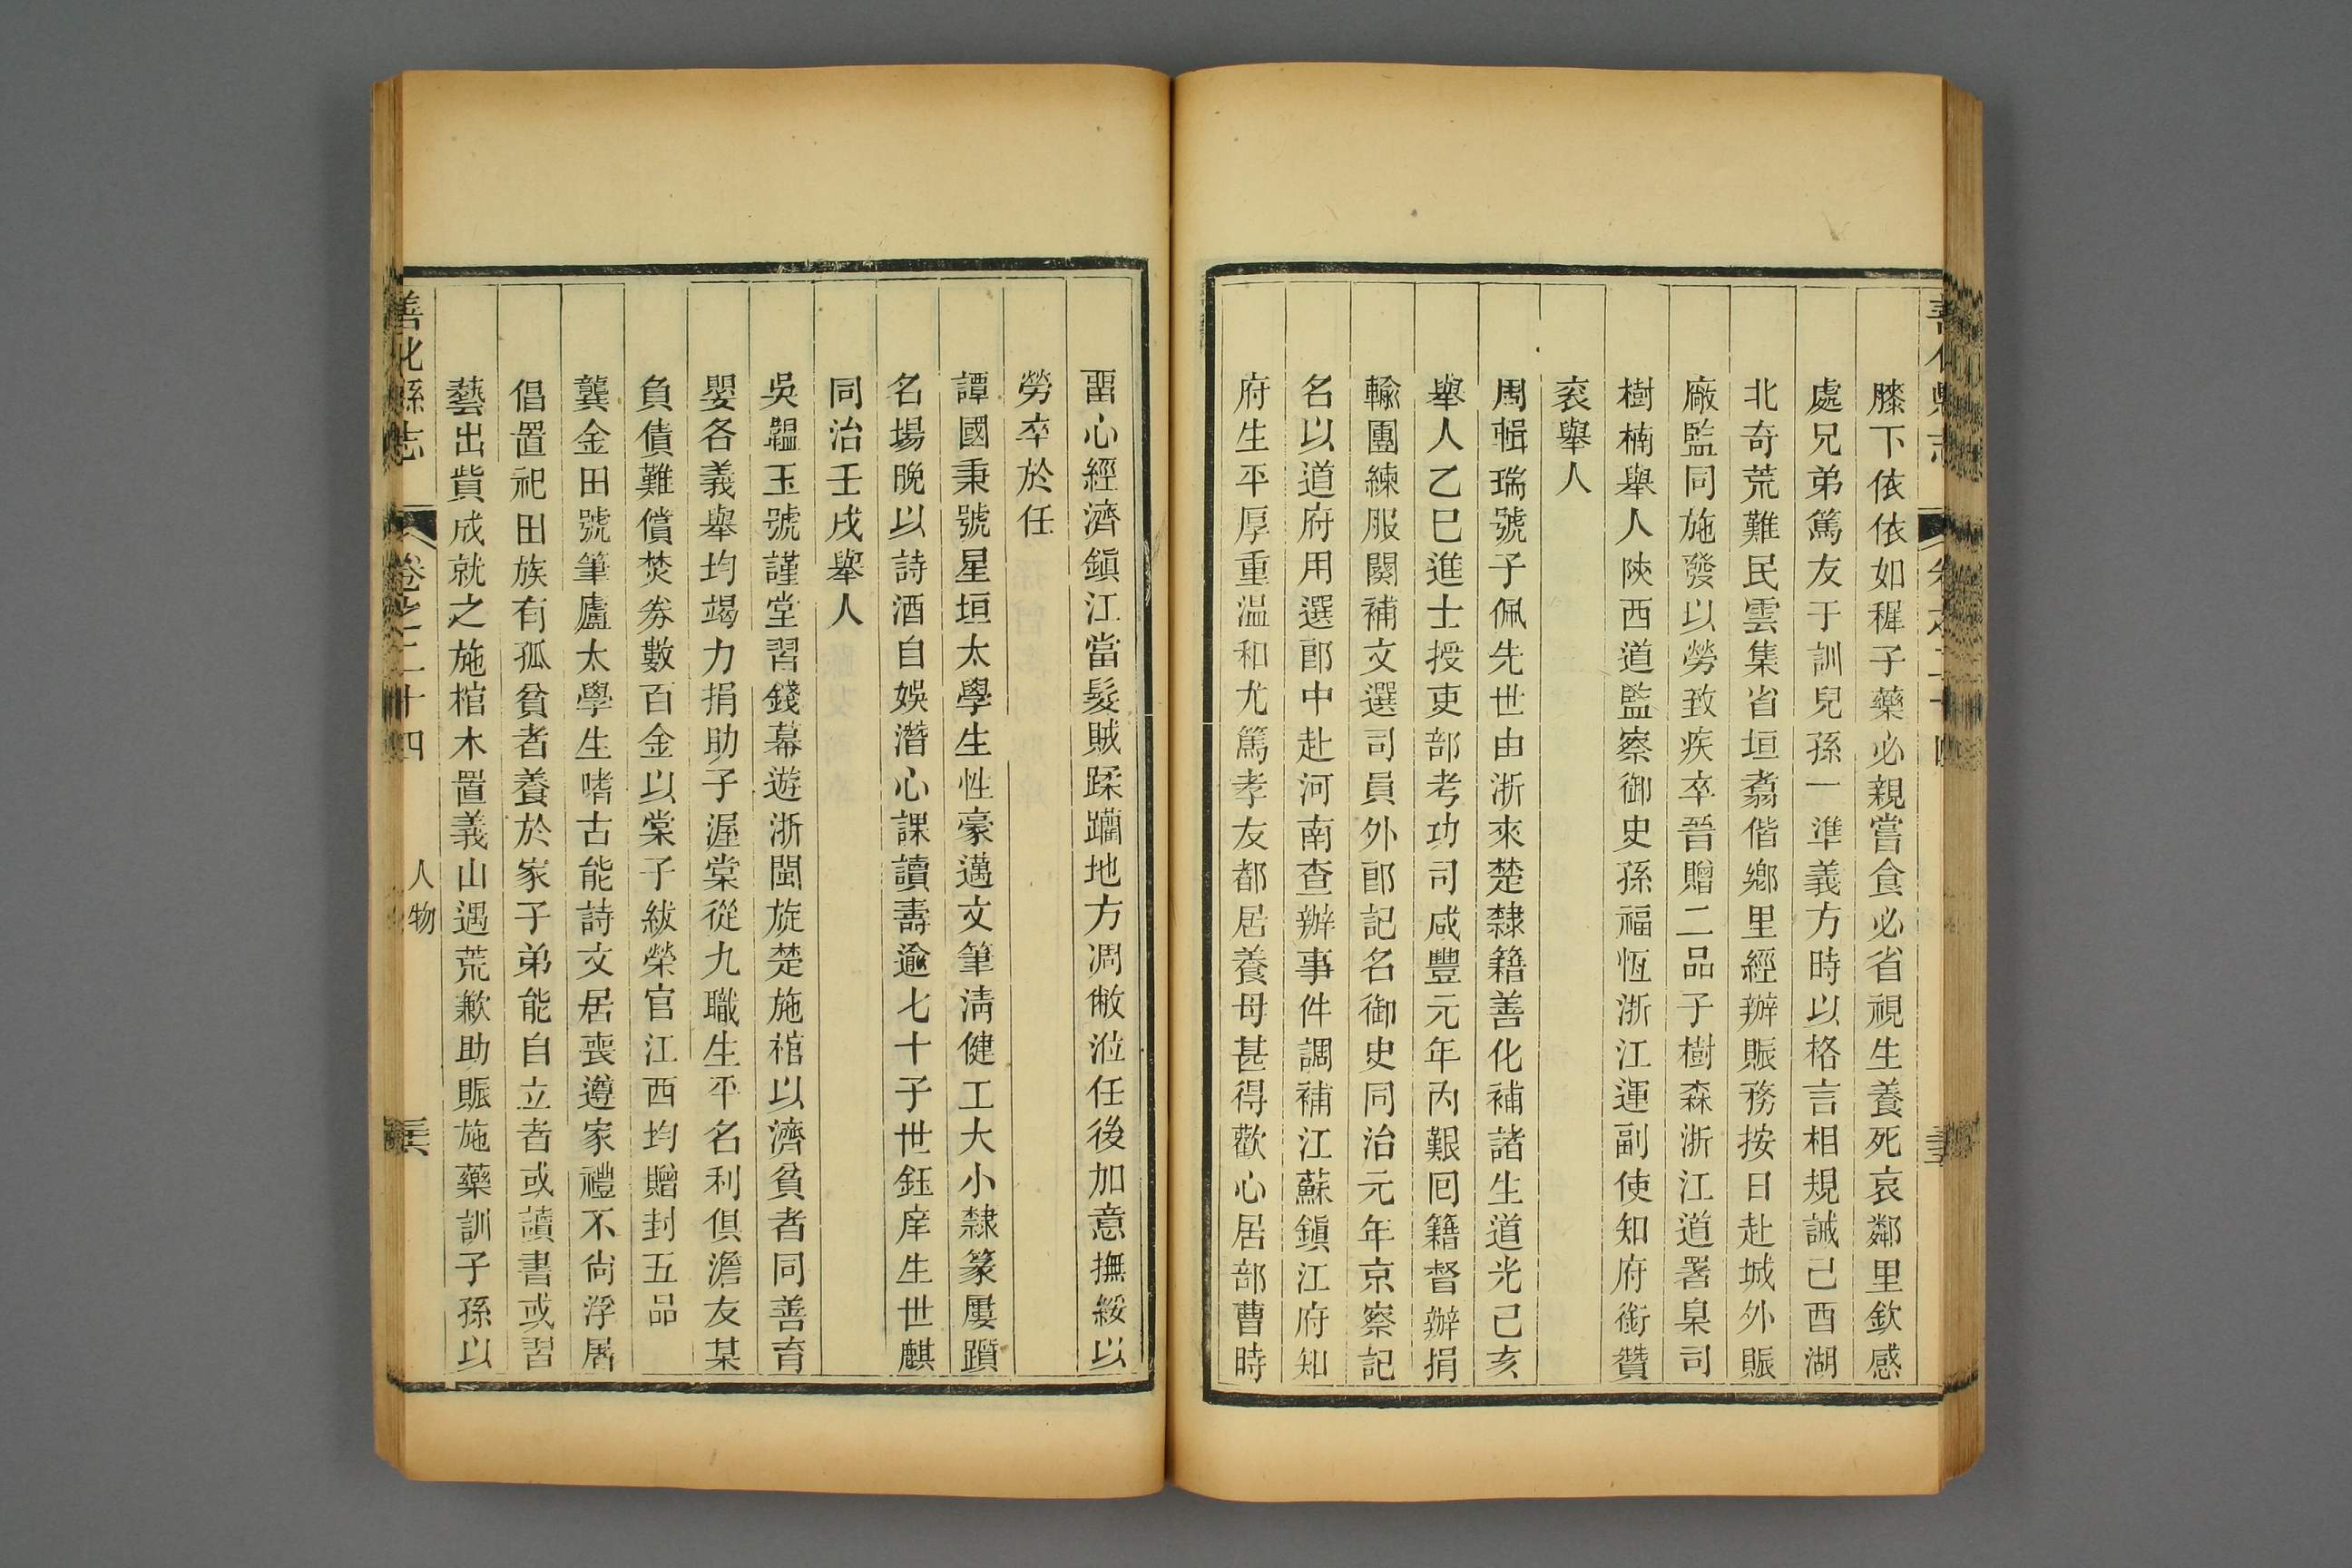 膝下依依如穉子藥必親嘗食必省視生養死哀鄰里欽感
處兄弟篤友于訓兒孫一準義方時以格言相規誡己酉湖
北奇荒難民雲集省垣翥偕鄉里經辦賑務按日赴城外賑
廠監同施發以勞致疾卒晉贈二品子樹森浙江道署臬司
樹楠舉人陝西道監察御史孫福恆浙江運副使知府銜贊
袞舉人
周輯瑞號子佩先世由浙來楚隸籍善化補諸生道光己亥
舉人乙巳進士授吏部考功司咸豐元年丙艱囘籍督辦捐
輸團練服闋補文選司員外郎記名御史同治元年京察記
名以道府用選郎中赴河南查辦事件調補江蘇鎭江府知
府生平厚重溫和尤篤孝友都居養母甚得歡心居部曹時
畱心經濟鎭江當髮賊蹂躪地方凋敝涖任後加意撫綏以
勞卒於任
譚國秉號星垣太學生性豪邁文筆淸健工大小隸篆屢躓
名場晚以詩酒自娛潛心課讀壽逾七十子世鈺庠生世麒
同治壬戌舉人
吳韞玉號謹堂習錢幕遊浙閩旋楚施棺以濟貧者同善育
嬰各義舉均竭力捐助子渥棠從九職生平名利俱澹友某
負債難償焚券數百金以棠子紱榮官江西均贈封五品
龔金田號筆廬太學生嗜古能詩文居喪遵家禮不尙浮屠
倡置祀田族有孤貧者養於家子弟能自立者或讀書或習
藝出貲成就之施棺木置義山遇荒歉助賑施藥訓子孫以
善化縣志 卷之二十四 人物